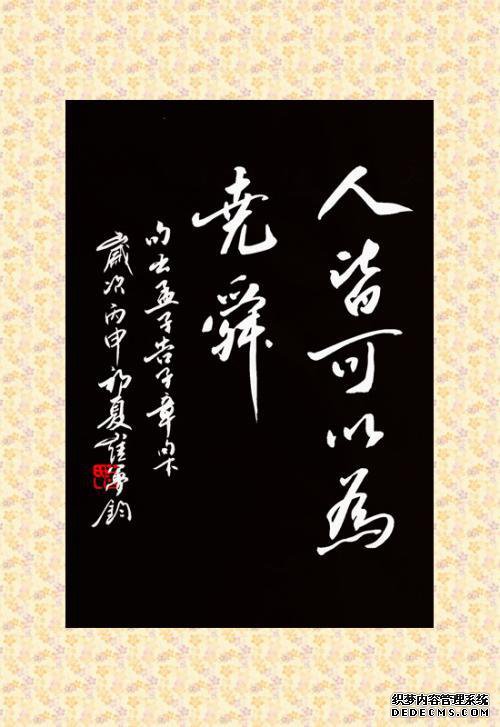 人皆可以為
堯舜
句出孟子告子章句下
歲次丙申初夏崔鈞
织梦内容管理系统
DEDECMS.COM